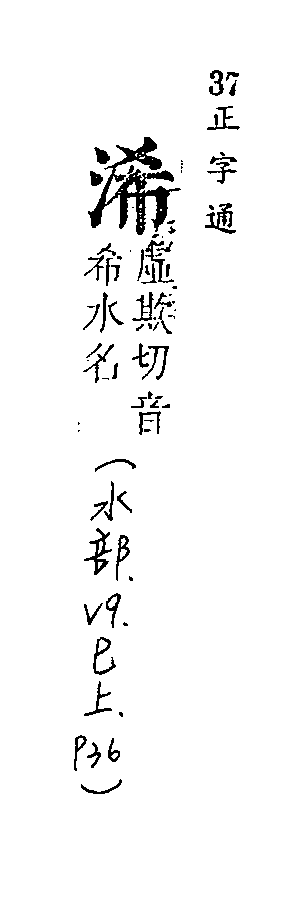 37正字通
浠
虛欺切音
希水名
(水部.V9.巳上.P36)